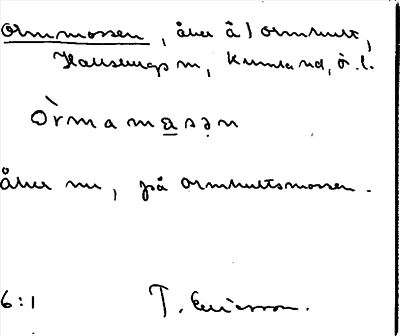 Ormmossen, åker å Ormhult,
Hallsbergs sn, Kumla hd, Ö.l.
òrmamåsən
Åker nu, på Ormhultsmossen.
6:1 T. Ericsson.